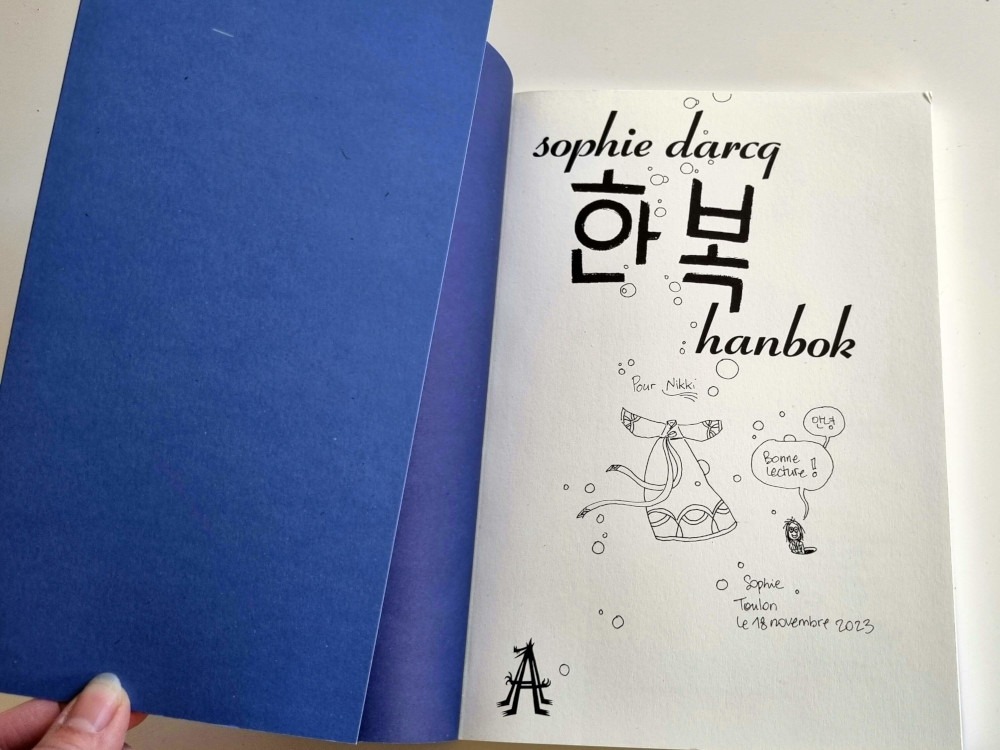 sophie darcq
한복
hanbok
Pour Nikki
안녕
Bonne
lecture !
Sophie
Toulon
le 18 novembre 2023
A